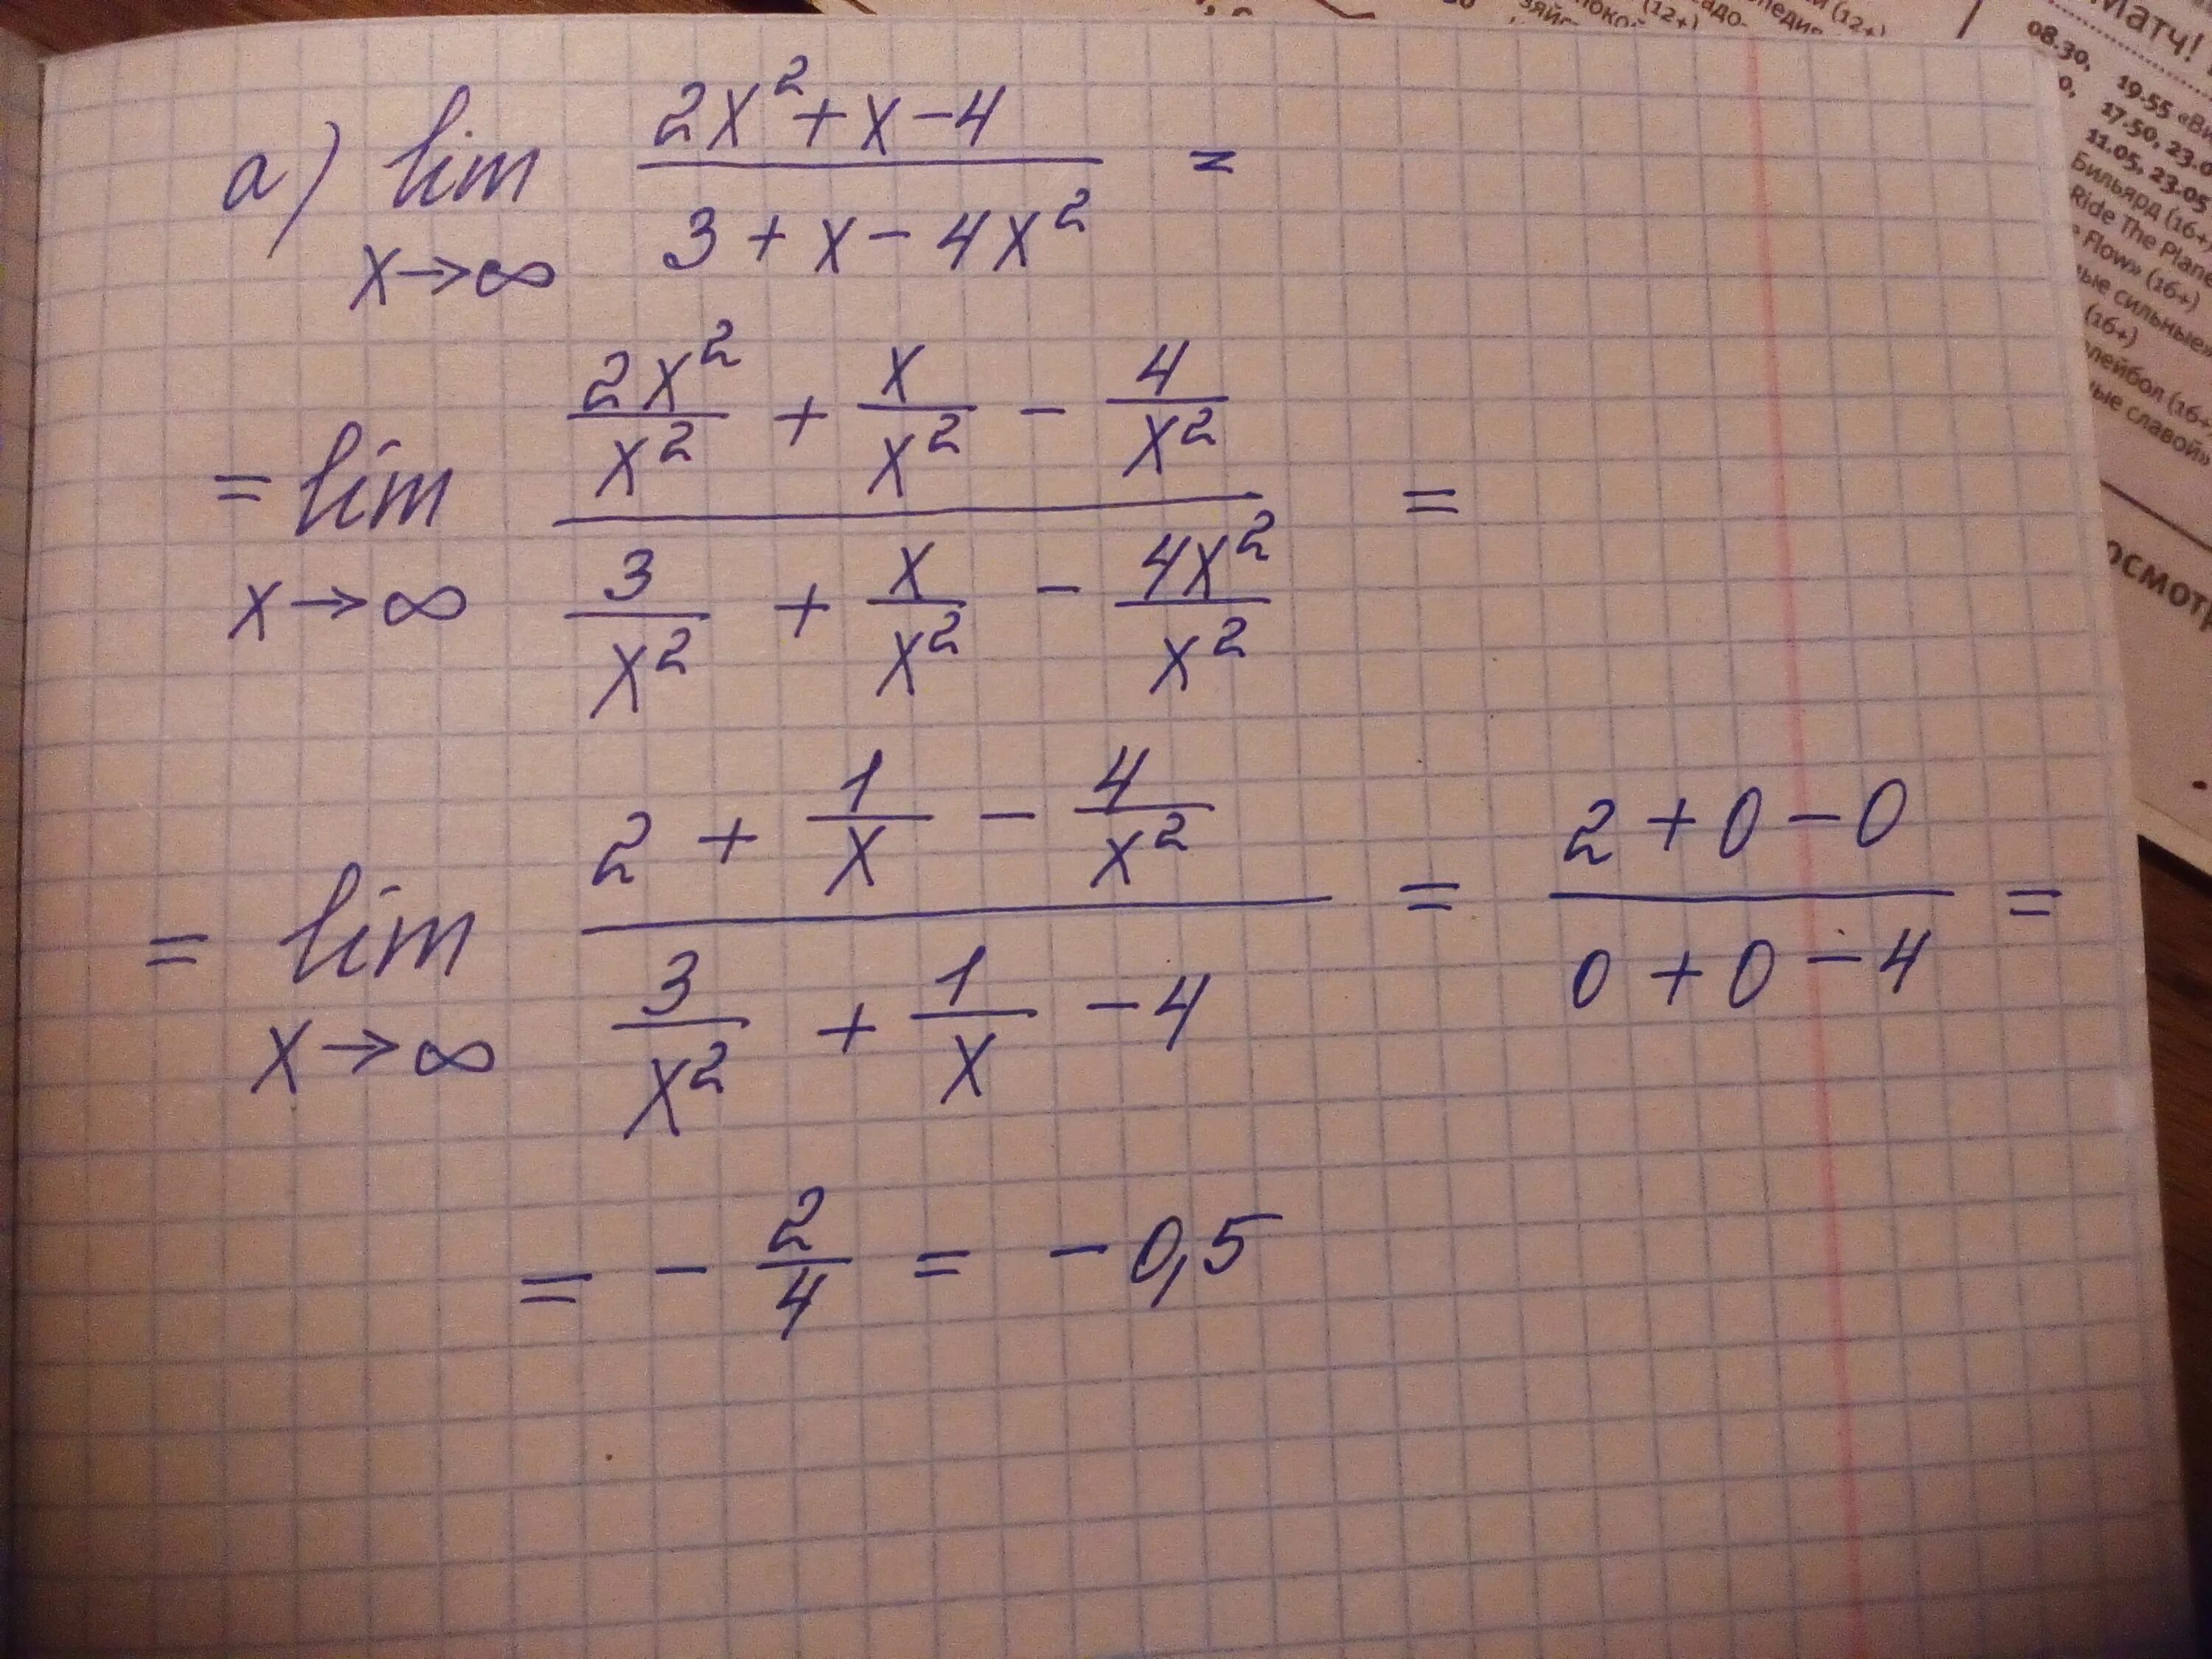 a) lim x→∞ (2x² + x − 4)/(3 + x − 4x²) =
= lim x→∞ (2x²/x² + x/x² − 4/x²)/(3/x² + x/x² − 4x²/x²) =
= lim x→∞ (2 + 1/x − 4/x²)/(3/x² + 1/x − 4) = (2 + 0 − 0)/(0 + 0 − 4) =
= − 2/4 = − 0,5
(12+)
(12+)
Матч!
08.30,
19.55
17.50, 23.0
11.05, 23.05
Бильярд (16+)
Ride The Plane
Flow» (16+)
сильные»
(16+)
(16+)
славой»